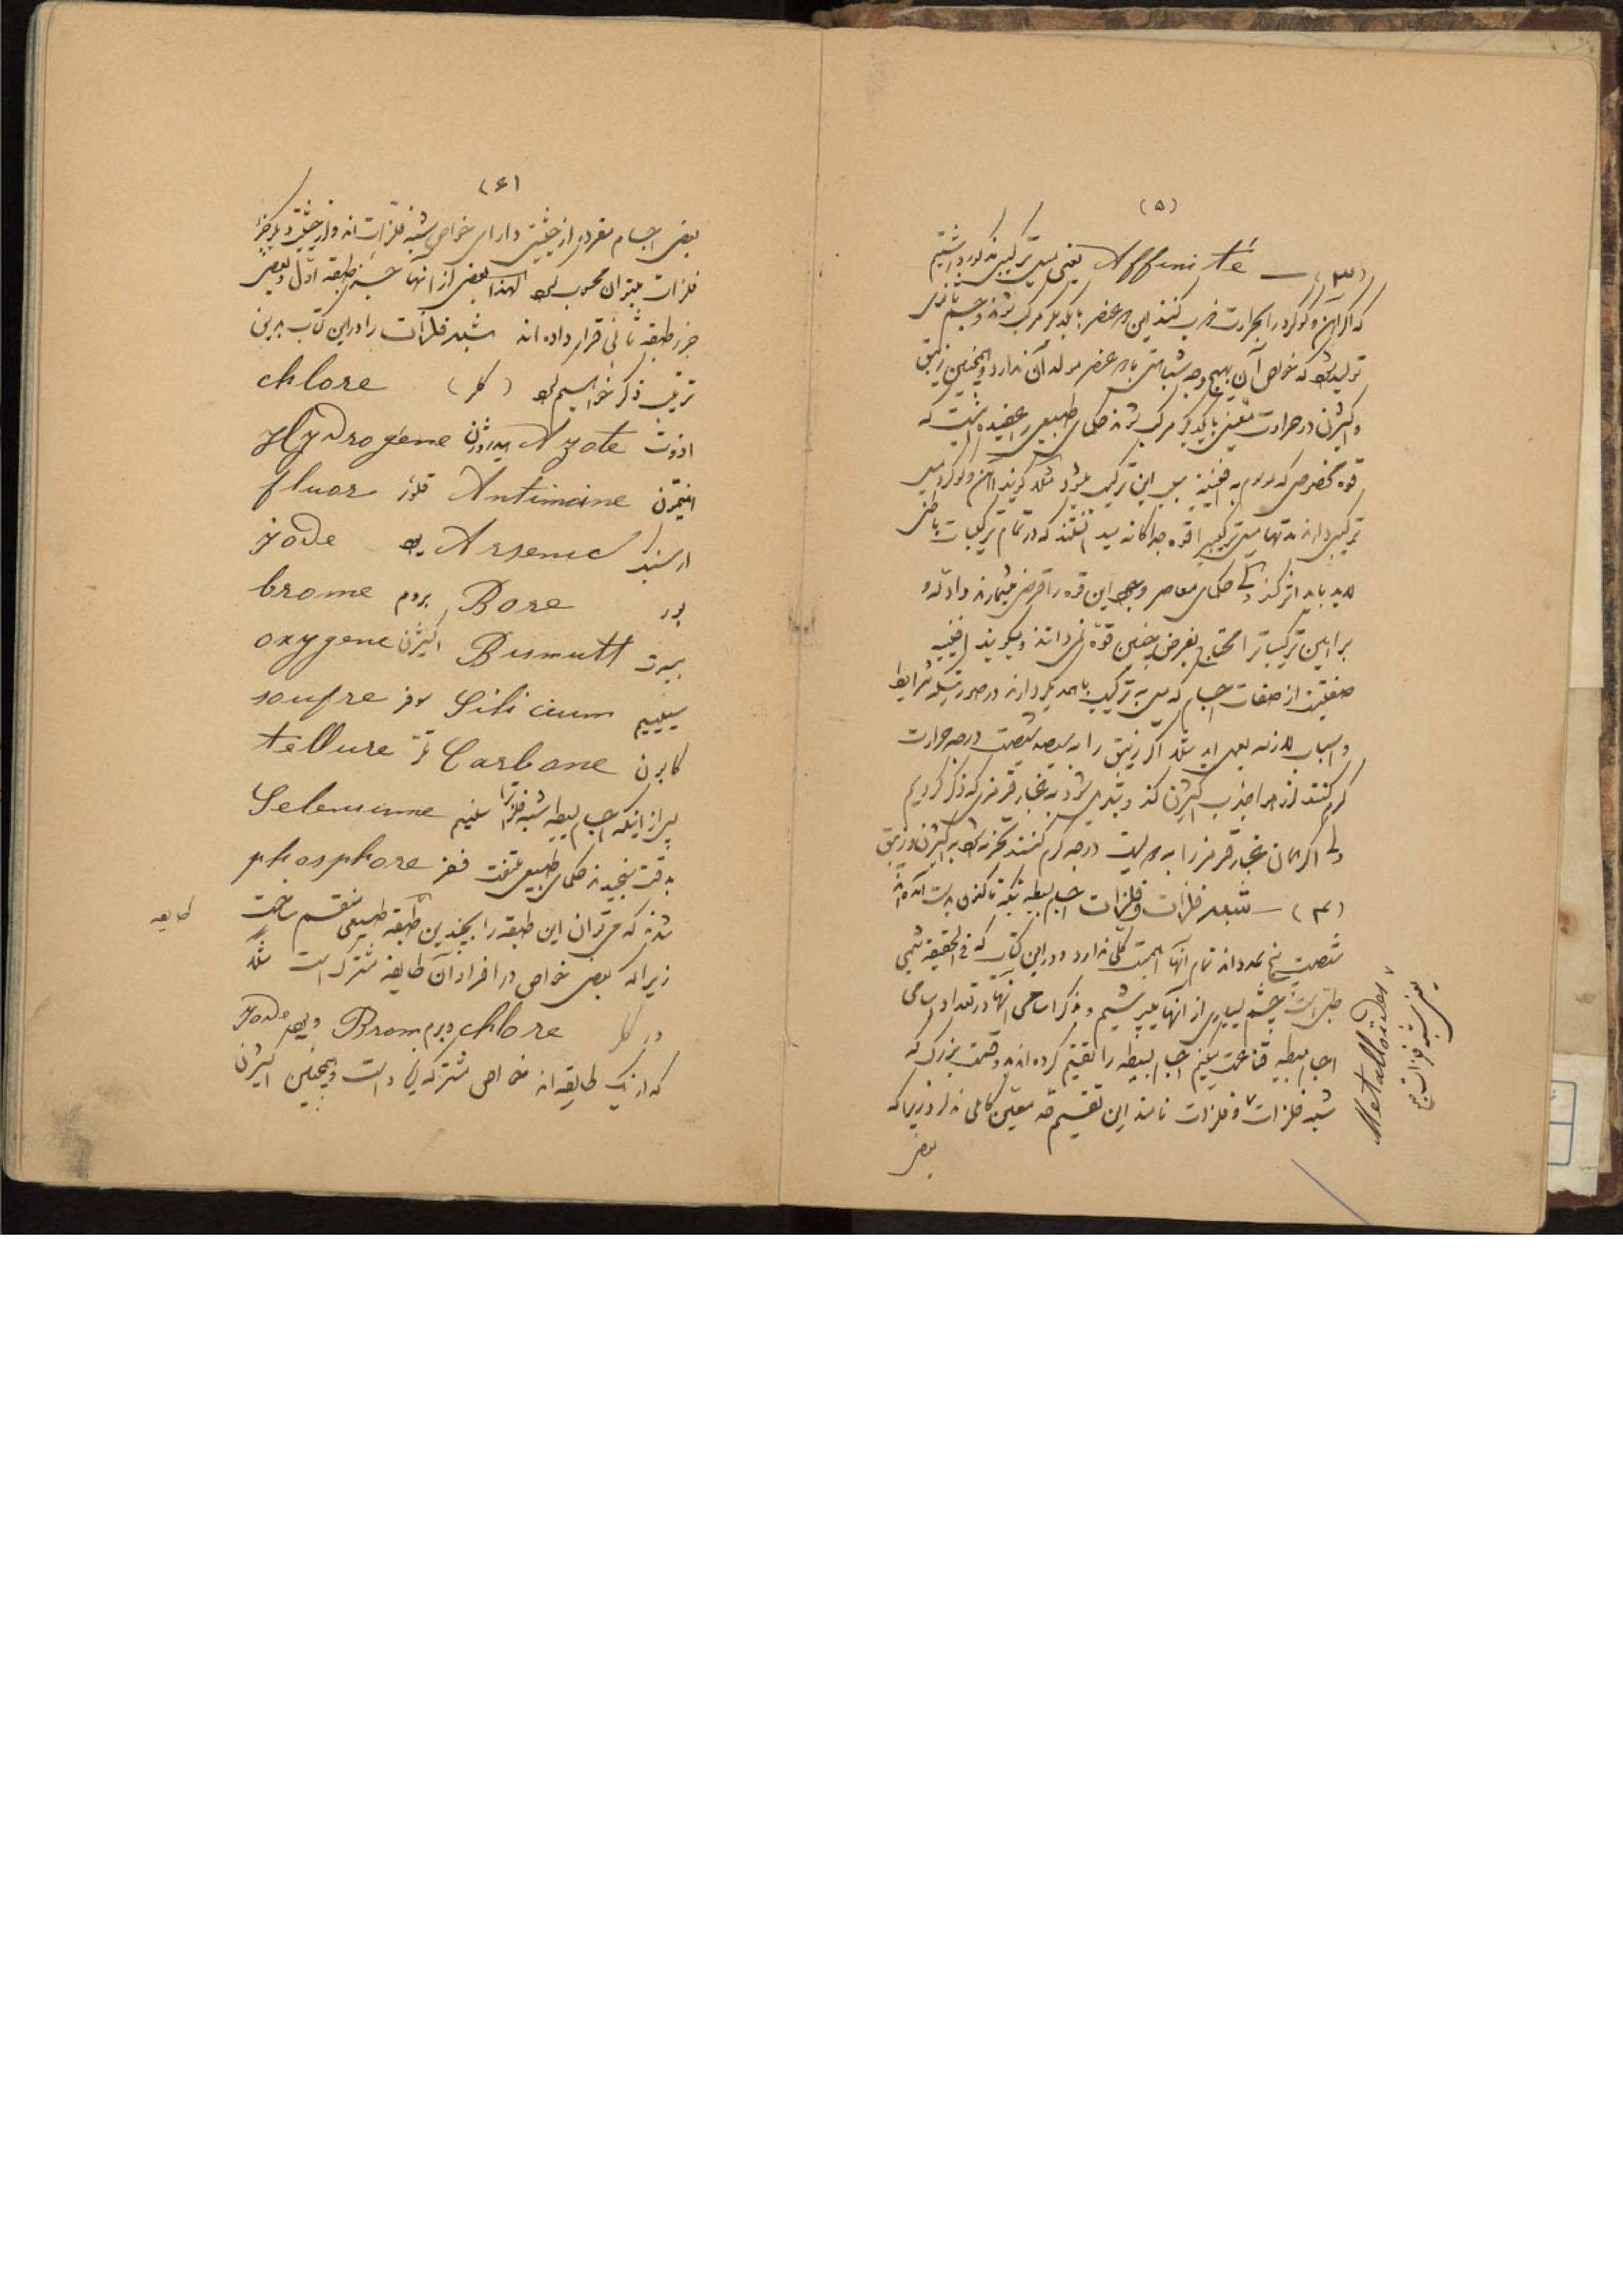 (۵)
(۳) — Affinité یعنی میل ترکیبی مذکور داشتیم
که اگر آهن و گوگرد را بحرارت ضرب کنند این دو عنصر با یکدیگر مرکب شوند و جسم ثانوی
تولید شود که خواص آن بهیچ وجه شباهتی با دو عنصر مولد آن ندارد و همچنین زیبق
و اکسیژن در حرارت معینی با یکدیگر مرکب شوند حکمای طبیعی را عقیده اینست که
قوه مخصوصی که موسوم به افینیته سبب این ترکیب میشود مثلا گویند آهن و گوگرد میل
ترکیبی دارند مدتها میل ترکیبی را قوه جداگانه میدانستند که در تمام ترکیبات باطنی
لابد باید اثر کند ولی حکمای معاصر وجود این قوه را فرضی میشمارند و ادله و
براهین ترکیباترا محتاج بفرض چنین قوه نمی دانند و میگویند افینیته
صفتیست از صفات اجسام که میل به ترکیب با همدیگر دارند در صورتیکه شرایط
و اسباب لازمه بعمل آید مثلا اگر زیبق را به سیصد شصت درجه حرارت
گرم کنند از هوا جذب اکسیژن کند و تبدیل شود به غبار قرمزی که ذکر کردیم
ولی اگر همان غبار قرمز را به دویست درجه گرم کنند تجزیه شود به اکسیژن و زیبق
(۴) — شبه فلزات و فلزات اجسام بسیطه که تا کنون بدست آمده اند
شصت پنج عدد اند تمام آنها اهمیت کلی ندارد و در این کتاب که فی الحقیقه شیمی
طبی است چشم بسیاری از آنها میپوشیم و بذکر اسامی آنها در تعداد اسامی
اجسام بسیطه قناعت میکنیم اجسام بسیطه را تقسیم کرده اند بدو قسمت بزرگ که
شبه فلزات ۷ و فلزات نامند این تقسیم حد معین کاملی ندارد زیرا که
بعضی
۷ Metalloïdes
یعنی شبه فلزات
(۶)
بعضی اجسام مفرده از حیثیتی دارای خواص شبه فلزات اند و از حیثیتی دیگر جزء
فلزات میتوان محسوب شود لهذا بعضی از آنها جزء طبقه اول و بعضی
جزء طبقه ثانی قرار داده اند شبه فلزات را در این کتاب بدین
ترتیب ذکر خواهیم نمود (کلر) chlore
ازوت Azote ایدروژن Hydrogéne
انتیمون Antimoine فلوئر fluor
ارسنیک Arsenic ید jode
بور Bore بروم brome
بیسموت Bismutt اکسیژن oxygene
سیلیسیم Silicium سوفر soufre
کاربون Carbone تلور tellure
پس از اینکه اجسام بسیطه شبه فلز را سلنیم Seleniume
بدقت سنجیدند حکمای طبیعی ملتفت فسفر phosphore
شدند که میتوان این طبقه را بچندین طبقه طبیعی منقسم ساخت
زیرا که بعضی خواص در افراد آن طایفه مشترک است مثلا
در کلر chlore و برم Brom و ید jode
که از یک طایفه اند خواص مشترکه پیداست و همچنین اکسیژن
طایفه